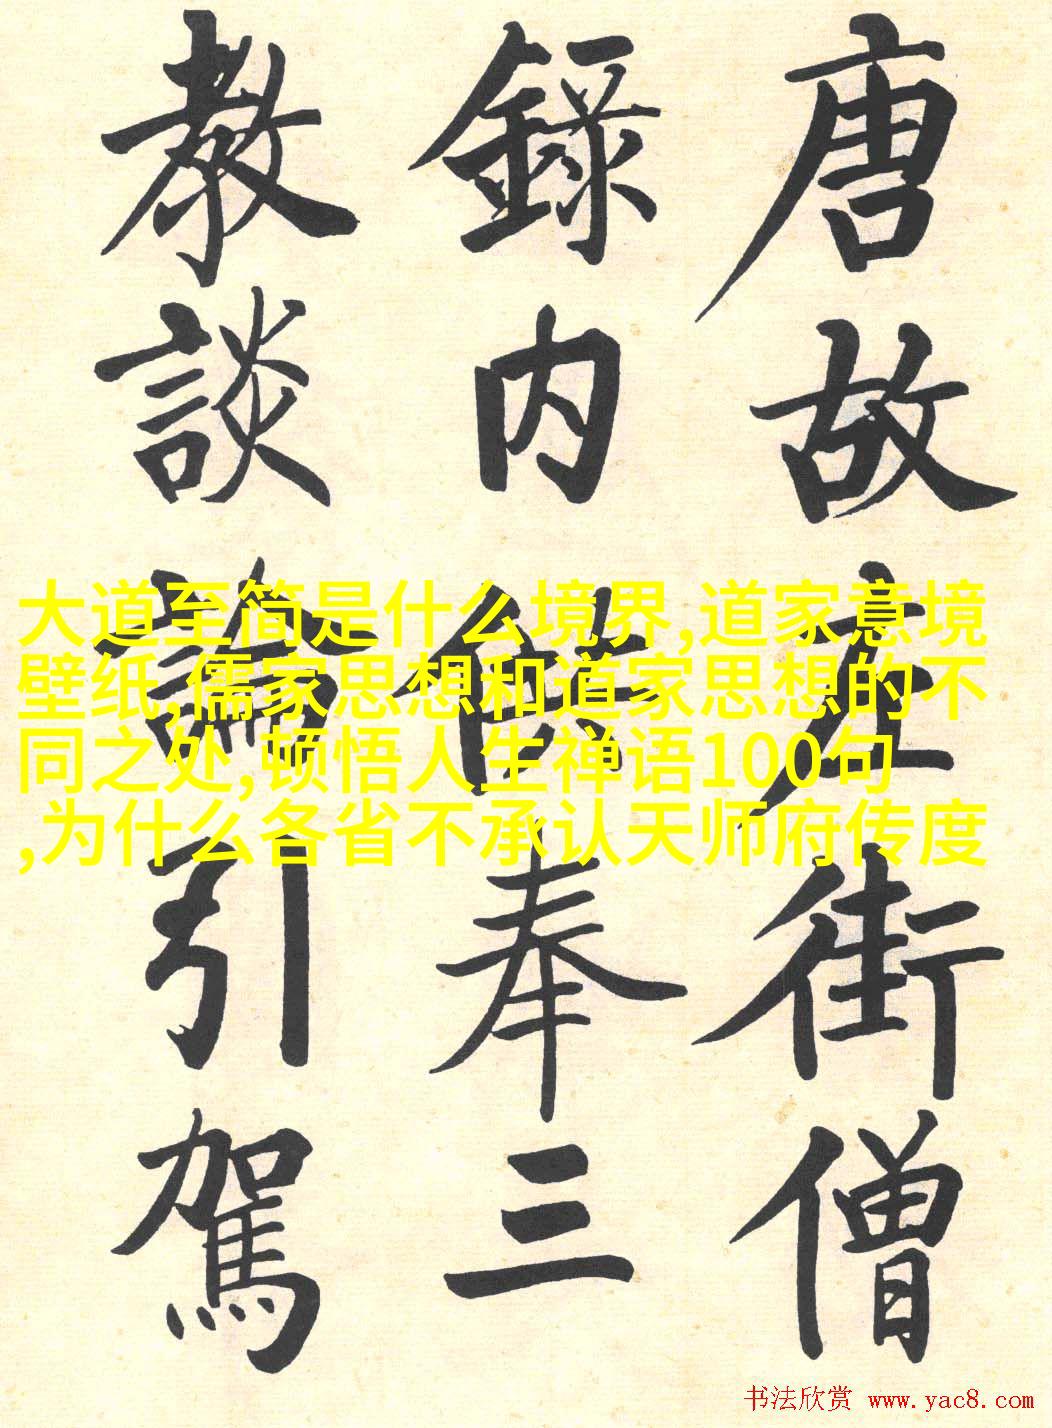 唐故左街僧
録内供奉三
教談論引駕
大道至简是什么境界,道家意境
壁纸,儒家思想和道家思想的不
同之处,顿悟人生禅语100句
,为什么各省不承认天师府传度
书法欣赏 www.yac8.com